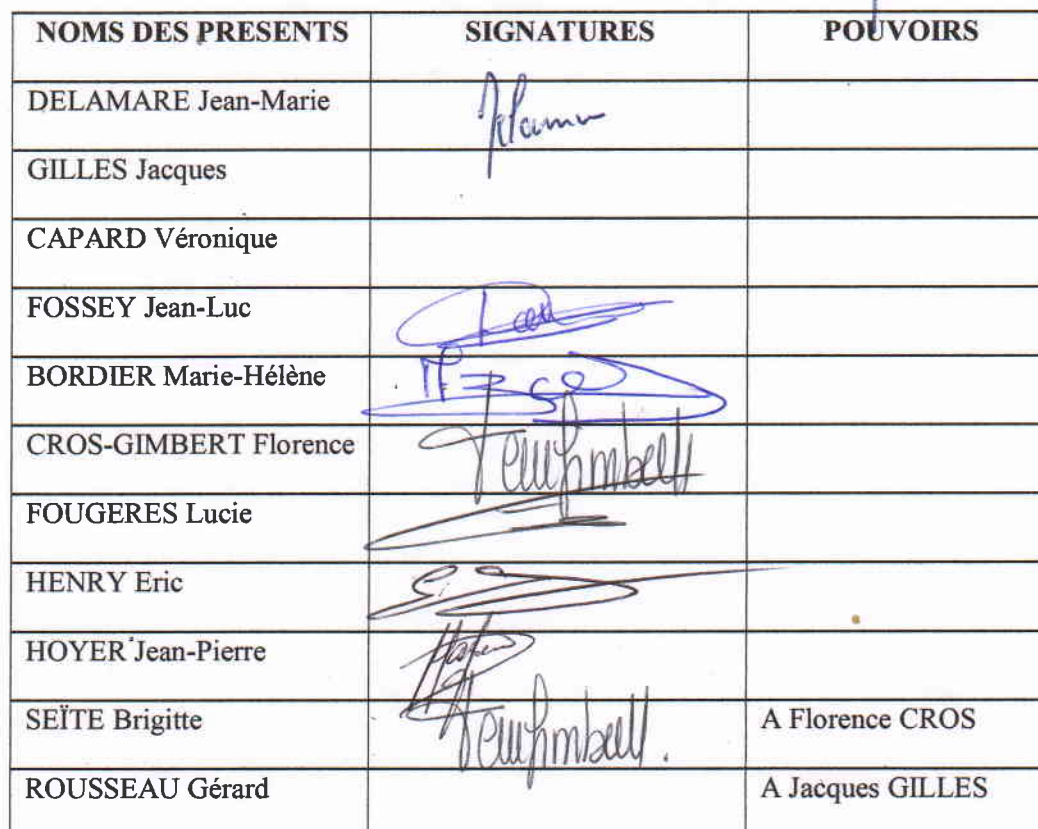 NOMS DES PRESENTS SIGNATURES POUVOIRS
DELAMARE Jean-Marie
GILLES Jacques
CAPARD Véronique
FOSSEY Jean-Luc
BORDIER Marie-Hélène
CROS-GIMBERT Florence
FOUGERES Lucie
HENRY Eric
HOYER Jean-Pierre
SEÏTE Brigitte A Florence CROS
ROUSSEAU Gérard A Jacques GILLES